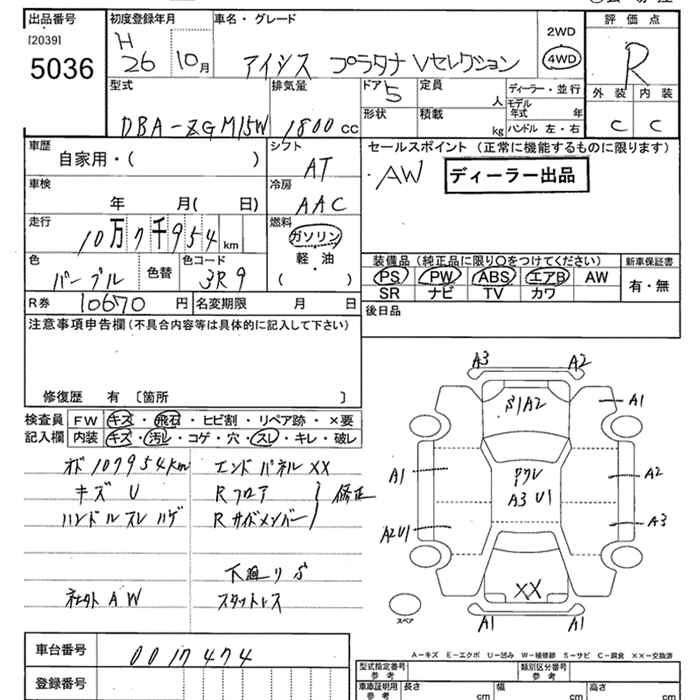 出品番号 初度登録年月 車名・グレード 評価点
[2039]
5036
H 26 10月 アイシス プラタナ Vセレクション 2WD 4WD R
外装 内装
C C
型式 排気量 ドア 5 定員 人 ディーラー・並行
DBA-ZGM15W 1800cc 形状 積載 kg モデル年式 年
ハンドル 左・右
車歴 シフト セールスポイント (正常に機能するものに限ります)
自家用・( ) AT ・AW ディーラー出品
車検 冷房
年 月( 日) AAC
走行 燃料
10万7千954km ガソリン
軽油
・
( )
色 色替 色コード 装備品(純正品に限り〇をつけてください) 新車保証書
パープル 3R9 PS PW ABS エアB AW 有・無
SR ナビ TV カワ
R券 10670円 名変期限 月 日 後日品
注意事項申告欄(不具合内容等は具体的に記入して下さい)
修復歴 有 〔箇所 〕
検査員 FW キズ・飛石・ヒビ割・リペア跡・×要
記入欄 内装 キズ・汚レ・コゲ・穴・スレ・キレ・破レ
オド107954km エンドパネルXX
キズU Rフロア
ハンドルスレハゲ Rサイドメンバー 修正
下廻りS
社外AW スタットレス
A3 A2
S1A2 A1
A1 A2
A3U1
A2U1 A3
XX
A1 A1
スペア
A-キズ E-エクボ U-凹み W-補修跡 S-サビ C-腐食 XX-交換済
車台番号 0017474
登録番号
型式指定番号 参考 類別区分番号 参考
車庫証明用 参考 長さ cm 幅 cm 高さ cm